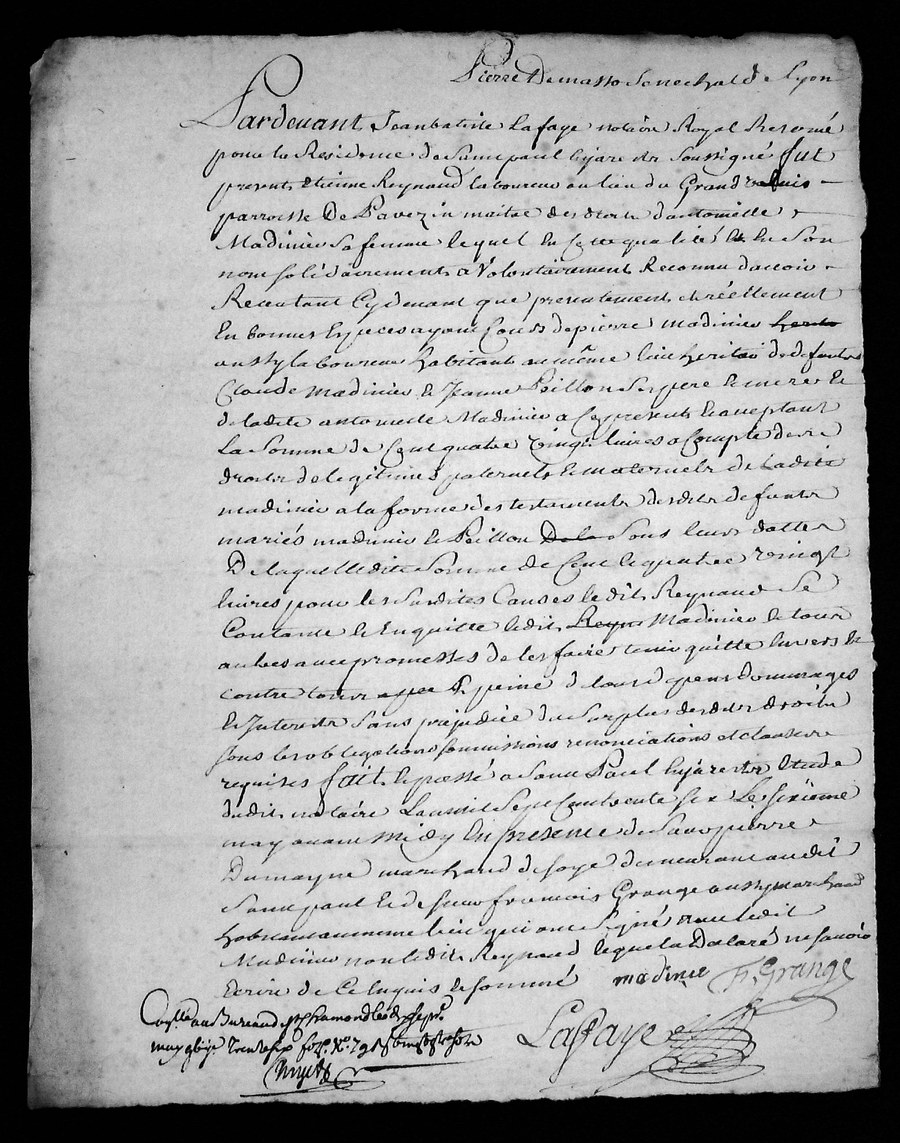 Pierre Demasso Senechal de Lyon
Pardevant Jeanbatiste Lafaye notaire Royal Reservé
pour la Residence de Saint paul En jarestz Soussigné fut
present Etienne Reynaud laboureur au lieu du Grand
parroisse De Pavezin maitre des droits d'antoinette
Madinier Sa femme lequel En Cette qualité Et En Son
nom solidairement a Volontairement Reconnu d'avoir
Receu tant Cydevant que presentement et réellement
En bonnes Especes ayant Cours de pierre Madinier
aussy laboureur habitant au même lieu heritier de defunts
Claude Madinier Et Jeanne Peillon Ses pere Et mere Et
de ladite antoinette Madinier a Ce present Et aceptant
La Somme de Cent quatre vingt livres a Compte des
droits de legitimes paternels Et maternels de Ladite
madinier a la forme des testaments desdits defunts
mariés madinier Et Peillon Sous leurs dattes
De laquelle dite Somme de Cent quatre vingt
livres pour les Susdites Causes ledit Reynaud Se
Contante Et En quitte ledit Madinier Et tous
autres avec promesses de les faire tenir quitte Envers Et
contre tous a peine de tous depens dommages
Et Interests Sans préjudice du Surplus desdits droits
sous les obligations soumissions renonciations et clauses
requises fait Et passé a Saint Paul En jarestz Etude
dudit notaire L'an mil Sept Cent trente six Le sixieme
may avant midy En presence de Sieur pierre
Dumayne marchand de soye demeurant audit
Saint paul Et de Sieur francois Grange aussy marchand
habitant au meme lieu qui ont Signé avec ledit
Madinier non ledit Reynaud lequel a Declaré ne savoir
Ecrire de Ce Enquis Et sommé madinier Fr. Grange
au Bureau de St
may
Lafaye